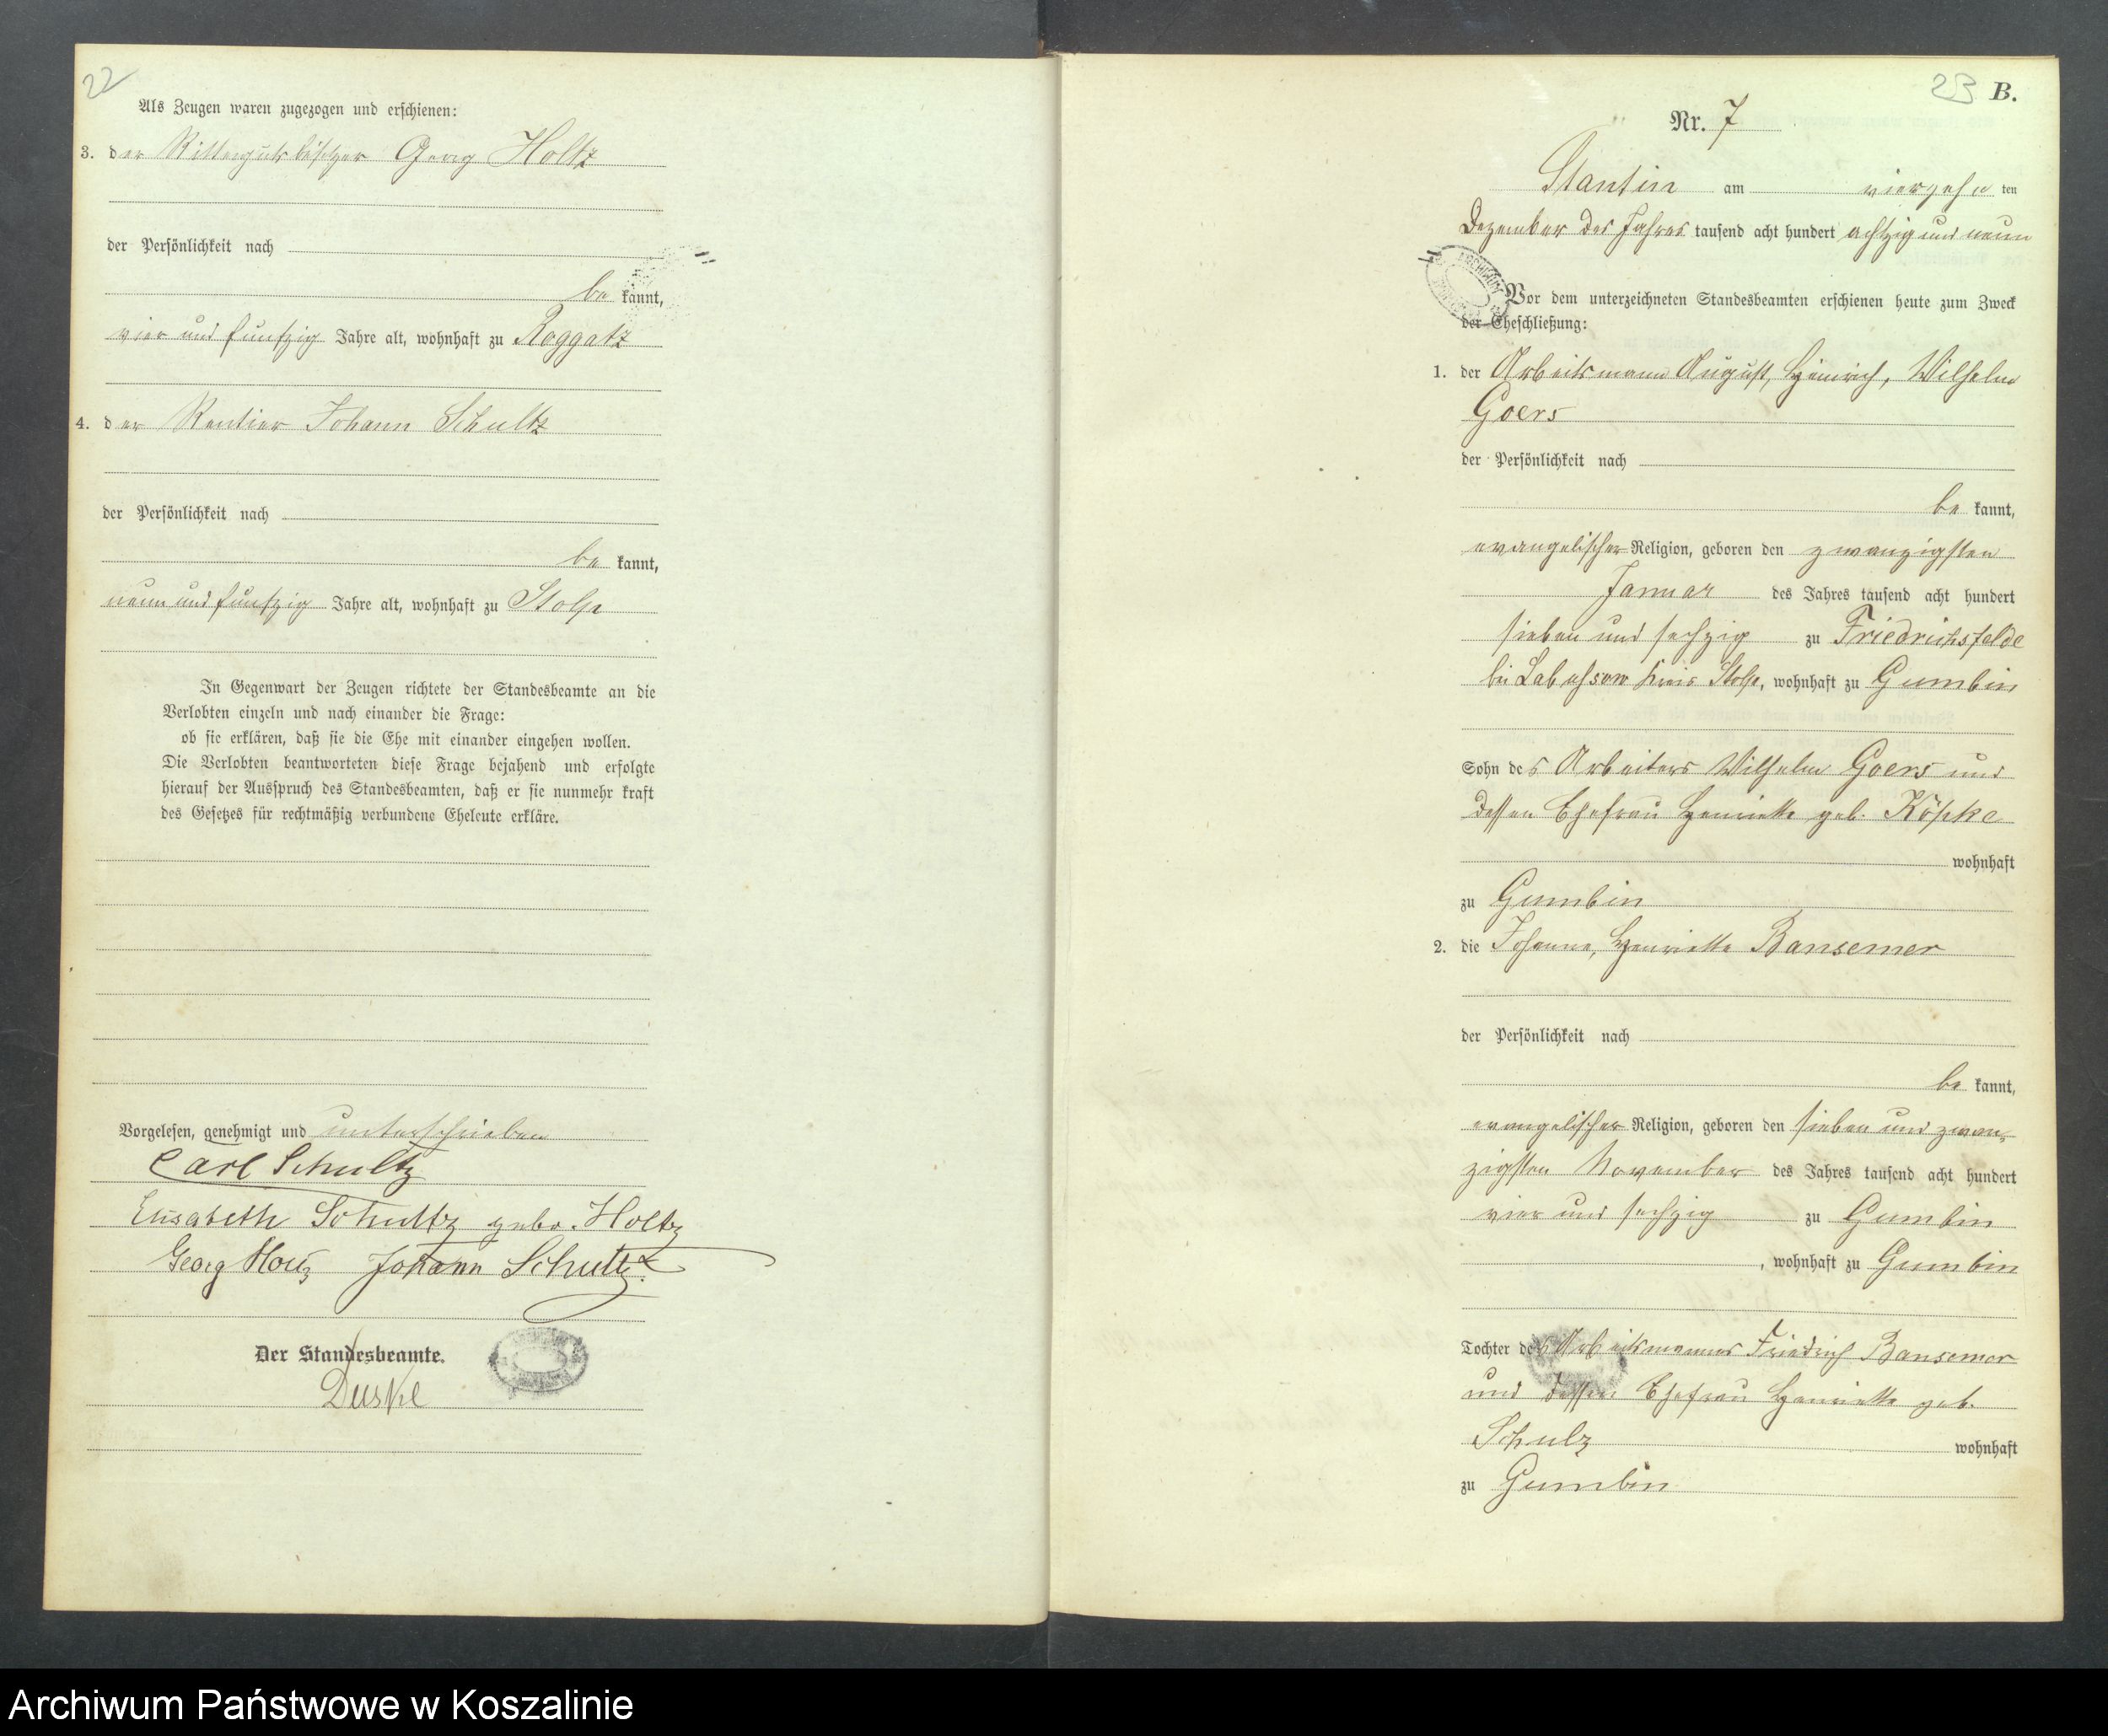 22
Als Zeugen waren zugezogen und erschienen:
3. der Rittergutsbesitzer Georg Holtz
der Persönlichkeit nach
be kannt,
vier und funfzig Jahre alt, wohnhaft zu Roggatz
4. der Rentier Johann Schultz
der Persönlichkeit nach
be kannt,
neun und funfzig Jahre alt, wohnhaft zu Stolp
In Gegenwart der Zeugen richtete der Standesbeamte an die
Verlobten einzeln und nach einander die Frage:
ob sie erklären, daß sie die Ehe mit einander eingehen wollen.
Die Verlobten beantworteten diese Frage bejahend und erfolgte
hierauf der Ausspruch des Standesbeamten, daß er sie nunmehr kraft
des Gesetzes für rechtmäßig verbundene Eheleute erkläre.
Vorgelesen, genehmigt und unterschrieben
Carl Schultz
Elisabeth Schultz gebr. Holtz
Georg Holtz Johann Schultz.
Der Standesbeamte.
23 B.
Nr. 7
Stantin am vierzehn ten
Dezember des Jahres tausend acht hundert achtzig und neun
Vor dem unterzeichneten Standesbeamten erschienen heute zum Zweck
der Eheschließung:
1. der Arbeitsmann August, Heinrich, Wilhelm
Goers
der Persönlichkeit nach
be kannt,
evangelischer Religion, geboren den zwanzigsten
Januar des Jahres tausend acht hundert
sieben und sechzig zu Friedrichsfelde
bei Labuhsow Kreis Stolp, wohnhaft zu Gumbin
Sohn des Arbeiters Wilhelm Goers und
dessen Ehefrau Henriette geb. Köpke
wohnhaft
zu Gumbin
2. die Johanne, Henriette Bansemer
der Persönlichkeit nach
be kannt,
evangelischer Religion, geboren den sieben und zwan-
zigsten November des Jahres tausend acht hundert
vier und sechzig zu Gumbin
, wohnhaft zu Gumbin
Tochter des Arbeitsmannes Friedrich Bansemer
und dessen Ehefrau Henriette geb.
Schulz wohnhaft
zu Gumbin
Archiwum Państwowe w Koszalinie